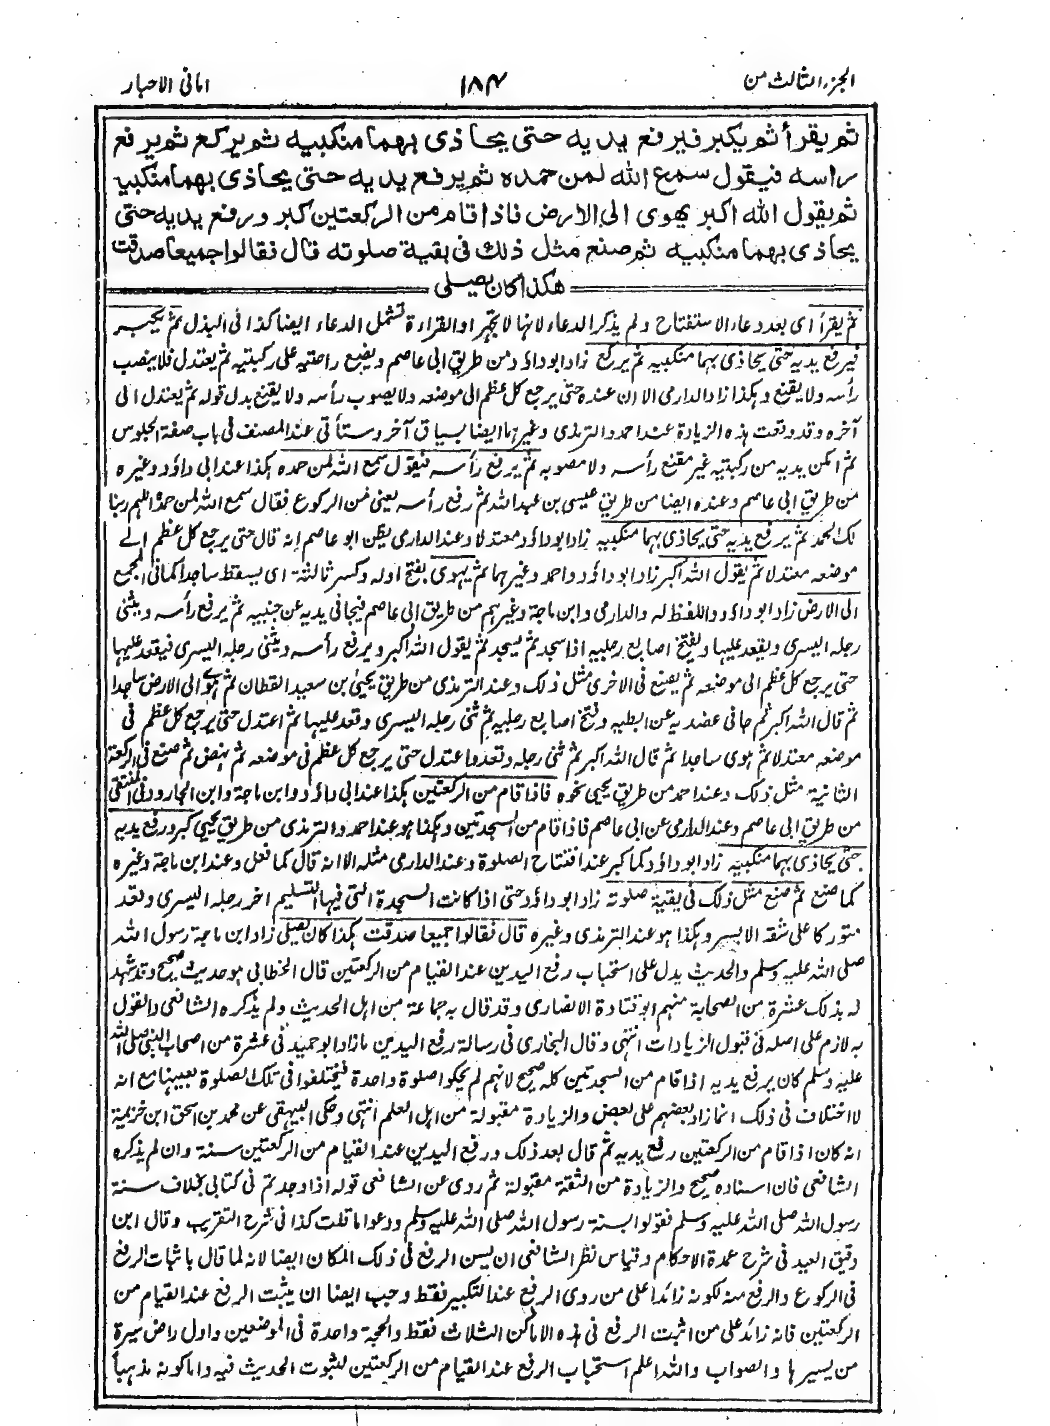 الجزء الثالث من
١٨٤
امانی الاحبار
ثم يقرأ ثم يكبر فيرفع يديه حتى يحاذى بهما منكبيه ثم يركع ثم يرفع
راسه فيقول سمع الله لمن حمده ثم يرفع يديه حتى يحاذى بهما منكبيه
ثم يقول الله اكبر يهوى الى الارض فاذا قام من الركعتين كبر ورفع يديه حتى
يحاذى بهما منكبيه ثم صنع مثل ذلك فى بقية صلوته قال فقالوا جميعا صدقت
هكذا كان يصلى
ثم يقرأ اى بعد دعاء الاستفتاح ولم يذكر الدعاء لانها لا تجهر او القراءة تشمل الدعاء ايضا كذا فى البذل ثم يكبر
فيرفع يديه حتى يحاذى بهما منكبيه ثم يركع زاد ابو داؤد من طريق ابى عاصم ويضع راحتيه على ركبتيه ثم يعتدل فلا ينصب
رأسه ولا يقنع وهكذا زاد الدارمى الا ان عنده حتى يرجع كل عظم الى موضعه ولا يصوب رأسه ولا يقنع بدل قوله ثم يعتدل الى
آخره وقد وقعت هذه الزيادة عند احمد والترمذى وغيرهما ايضا بسياق آخر وستأتى عند المصنف فى باب صفة الجلوس
ثم امكن يديه من ركبتيه غير مقنع رأسه ولا مصوبه ثم يرفع رأسه فيقول سمع الله لمن حمده هكذا عند ابى داؤد وغيره
من طريق ابى عاصم وعنده ايضا من طريق عيسى بن عبد الله ثم رفع رأسه يعنى من الركوع فقال سمع الله لمن حمده اللهم ربنا
لك الحمد ثم يرفع يديه حتى يحاذى بهما منكبيه زاد ابو داؤد معتدلا وعند الدارمى يظن ابو عاصم انه قال حتى يرجع كل عظم الى
موضعه معتدلا ثم يقول الله اكبر زاد ابو داؤد واحمد وغيرهما ثم يهوى بفتح اوله وكسر ثالثة اى يسقط ساجدا كما فى المجمع
الى الارض زاد ابو داؤد واللفظ له والدارمى وابن ماجة وغيرهم من طريق ابى عاصم فيجافى يديه عن جنبيه ثم يرفع رأسه ويثنى
رجله اليسرى ويقعد عليها ويفتح اصابع رجليه اذا سجد ثم يسجد ثم يقول الله اكبر ويرفع رأسه ويثنى رجله اليسرى فيقعد عليها
حتى يرجع كل عظم الى موضعه ثم يصنع فى الاخرى مثل ذلك وعند الترمذى من طريق يحيى بن سعيد القطان ثم هوى الى الارض ساجدا
ثم قال الله اكبر ثم جافى عضديه عن ابطيه وفتح اصابع رجليه ثم ثنى رجله اليسرى وقعد عليها ثم اعتدل حتى يرجع كل عظم فى
موضعه معتدلا ثم هوى ساجدا ثم قال الله اكبر ثم ثنى رجله وقعد واعتدل حتى يرجع كل عظم فى موضعه ثم نهض ثم صنع فى الركعة
الثانية مثل ذلك وعند احمد من طريق يحيى نحوه فاذا قام من الركعتين هكذا عند ابى داؤد وابن ماجة وابن الجارود فى المنتقى
من طريق ابى عاصم وعند الدارمى عن ابى عاصم فاذا قام من السجدتين وهكذا هو عند احمد والترمذى من طريق يحيى كبر ورفع يديه
حتى يحاذى بهما منكبيه زاد ابو داؤد كما كبر عند افتتاح الصلوة وعند الدارمى مثله الا انه قال كما فعل وعند ابن ماجة وغيره
كما صنع ثم صنع مثل ذلك فى بقية صلوته زاد ابو داؤد حتى اذا كانت السجدة التى فيها التسليم اخر رجله اليسرى وقعد
متوركا على شقه الايسر وهكذا هو عند الترمذى وغيره قال فقالوا جميعا صدقت هكذا كان يصلى زاد ابن ماجة رسول الله
صلى الله عليه وسلم والحديث يدل على استحباب رفع اليدين عند القيام من الركعتين قال الخطابى هو حديث صحيح وقد شهد
له بذلك عشرة من الصحابة منهم ابو قتادة الانصارى وقد قال به جماعة من اهل الحديث ولم يذكره الشافعى والقول
به لازم على اصله فى قبول الزيادات انتهى وقال البخارى فى رسالة رفع اليدين ما زاد ابو حميد فى عشرة من اصحاب النبى صلى الله
عليه وسلم كان يرفع يديه اذا قام من السجدتين كله صحيح لانهم لم يحكوا صلوة واحدة فيختلفوا فى تلك الصلوة بعينها مع انه
لا اختلاف فى ذلك انما زاد بعضهم على بعض والزيادة مقبولة من اهل العلم انتهى وحكى البيهقى عن محمد بن اسحق ابن خزيمة
انه كان اذا قام من الركعتين رفع يديه ثم قال بعد ذلك ورفع اليدين عند القيام من الركعتين سنة وان لم يذكره
الشافعى فان اسناده صحيح والزيادة من الثقة مقبولة ثم روى عن الشافعى قوله اذا وجدتم فى كتابى بخلاف سنة
رسول الله صلى الله عليه وسلم فقولوا بسنة رسول الله صلى الله عليه وسلم ودعوا ما قلت كذا فى شرح التقريب وقال ابن
دقيق العيد فى شرح عمدة الاحكام وقياس نظر الشافعى ان يسن الرفع فى ذلك المكان ايضا لانه لما قال باثبات الرفع
فى الركوع والرفع منه لكونه زائدا على من روى الرفع عند التكبير فقط وجب ايضا ان يثبت الرفع عند القيام من
الركعتين فانه زائد على من اثبت الرفع فى هذه الاماكن الثلاث فقط والحجة واحدة فى الموضعين واول راض سيرة
من يسيرها والصواب والله اعلم استحباب الرفع عند القيام من الركعتين لثبوت الحديث فيه واما كونه مذهبا